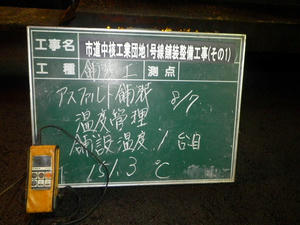 工事名 市道中核工業団地1号線舗装整備工事(その1)
工種 舗装工 測点
アスファルト舗装 8/7
温度管理
舗設温度 1台目
151.3℃